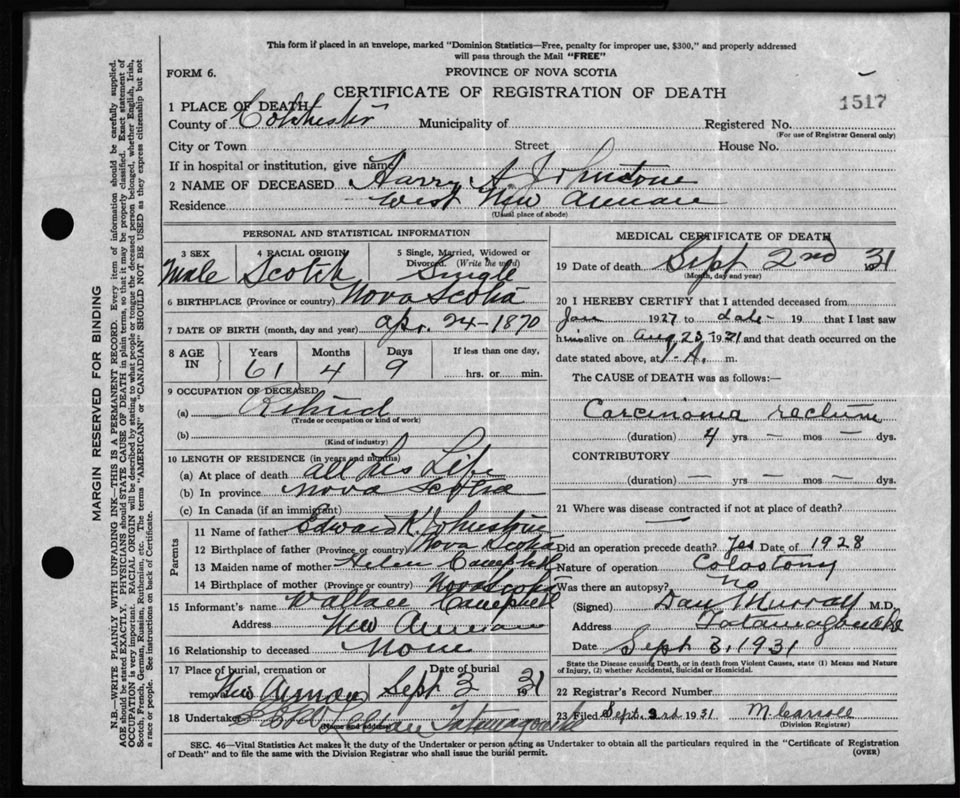 This form if placed in an envelope, marked "Dominion Statistics—Free, penalty for improper use, $300," and properly addressed
will pass through the Mail "FREE"
FORM 6.
PROVINCE OF NOVA SCOTIA
CERTIFICATE OF REGISTRATION OF DEATH
1517
1 PLACE OF DEATH
County of Colchester Municipality of Registered No.
(For use of Registrar General only)
City or Town Street House No.
If in hospital or institution, give name
2 NAME OF DECEASED Harry A Johnstone
Residence West New Annan
(Usual place of abode)
PERSONAL AND STATISTICAL INFORMATION
3 SEX 4 RACIAL ORIGIN 5 Single, Married, Widowed or
Divorced. (Write the word)
Male Scotch Single
6 BIRTHPLACE (Province or country) Nova Scotia
7 DATE OF BIRTH (month, day and year) Apr. 24-1870
8 AGE IN Years Months Days If less than one day,
61 4 9 hrs. or min.
9 OCCUPATION OF DECEASED
(a) Retired
(Trade or occupation or kind of work)
(b)
(Kind of industry)
10 LENGTH OF RESIDENCE (in years and months)
(a) At place of death all his Life
(b) In province Nova Scotia
(c) In Canada (if an immigrant)
Parents
11 Name of father Edward K Johnstone
12 Birthplace of father (Province or country) Nova Scotia
13 Maiden name of mother Helen Campbell
14 Birthplace of mother (Province or country) Nova Scotia
15 Informant's name Wallace Campbell
Address New Annan
16 Relationship to deceased None
17 Place of burial, cremation or Date of burial
removal New Annan Sept 3 31
18 Undertaker Tatamagouche
MEDICAL CERTIFICATE OF DEATH
19 Date of death Sept 2nd 31
(Month, day and year)
20 I HEREBY CERTIFY that I attended deceased from
Jan 1927 to date 19 that I last saw
him alive on Aug 23, 1931 and that death occurred on the
date stated above, at A. m.
The CAUSE OF DEATH was as follows:—
Carcinoma rectum
(duration) 4 yrs — mos — dys.
CONTRIBUTORY
(duration) — yrs — mos — dys.
21 Where was disease contracted if not at place of death?
—
Did an operation precede death? Yes Date of 1928
Nature of operation Colostomy
Was there an autopsy? No
(Signed) Dan Murray M.D.
Address Tatamagouche
Date Sept 3, 1931
State the Disease causing Death, or in death from Violent Causes, state (1) Means and Nature
of Injury, (2) whether Accidental, Suicidal or Homicidal.
22 Registrar's Record Number
23 Filed Sept. 3rd 1931 M Carroll
(Division Registrar)
SEC. 46—Vital Statistics Act makes it the duty of the Undertaker or person acting as Undertaker to obtain all the particulars required in the "Certificate of Registration
of Death" and to file the same with the Division Registrar who shall issue the burial permit.
(OVER)
MARGIN RESERVED FOR BINDING
N.B.—WRITE PLAINLY WITH UNFADING INK—THIS IS A PERMANENT RECORD. Every item of information should be carefully supplied.
AGE should be stated EXACTLY. PHYSICIANS should STATE CAUSE OF DEATH in plain terms, so that it may be properly classified. Exact statement of
OCCUPATION is very important. RACIAL ORIGIN will be described by stating to what people or tongue the deceased person belonged, whether English, Irish,
Scotch, French, German, Russian, Ruthenian, etc. The terms "AMERICAN" or "CANADIAN" SHOULD NOT BE USED as they express citizenship but not
a race or people. See instructions on back of Certificate.